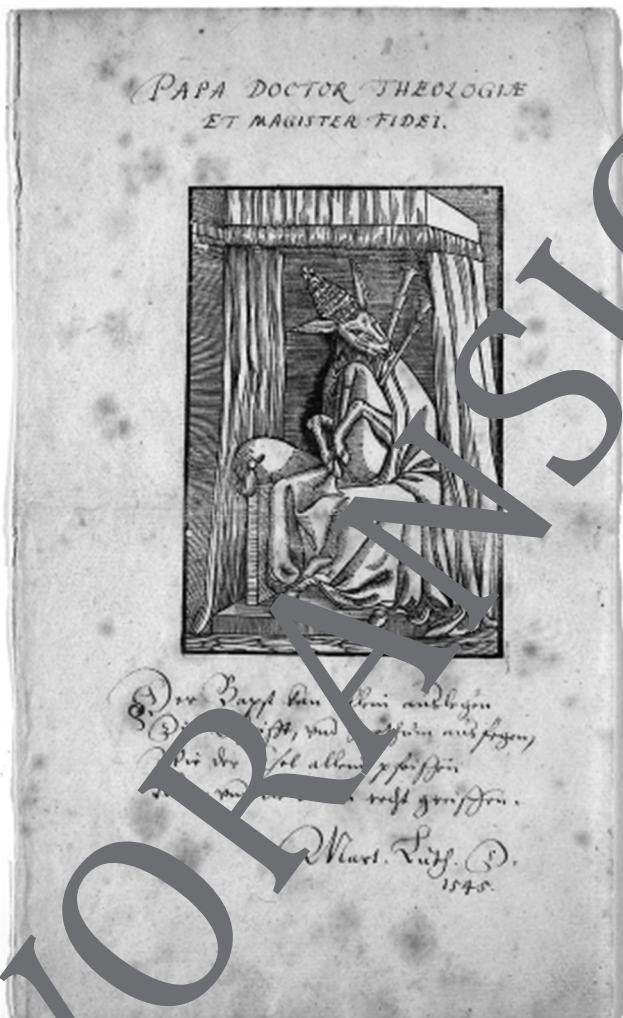 PAPA DOCTOR THEOLOGIÆ
ET MAGISTER FIDEI.
Der Bapst kan auslegen
und ausfegen,
Wie der allein pfeiffen
und recht greiffen.
Mart. Luth. D.
1545.
ORANSI